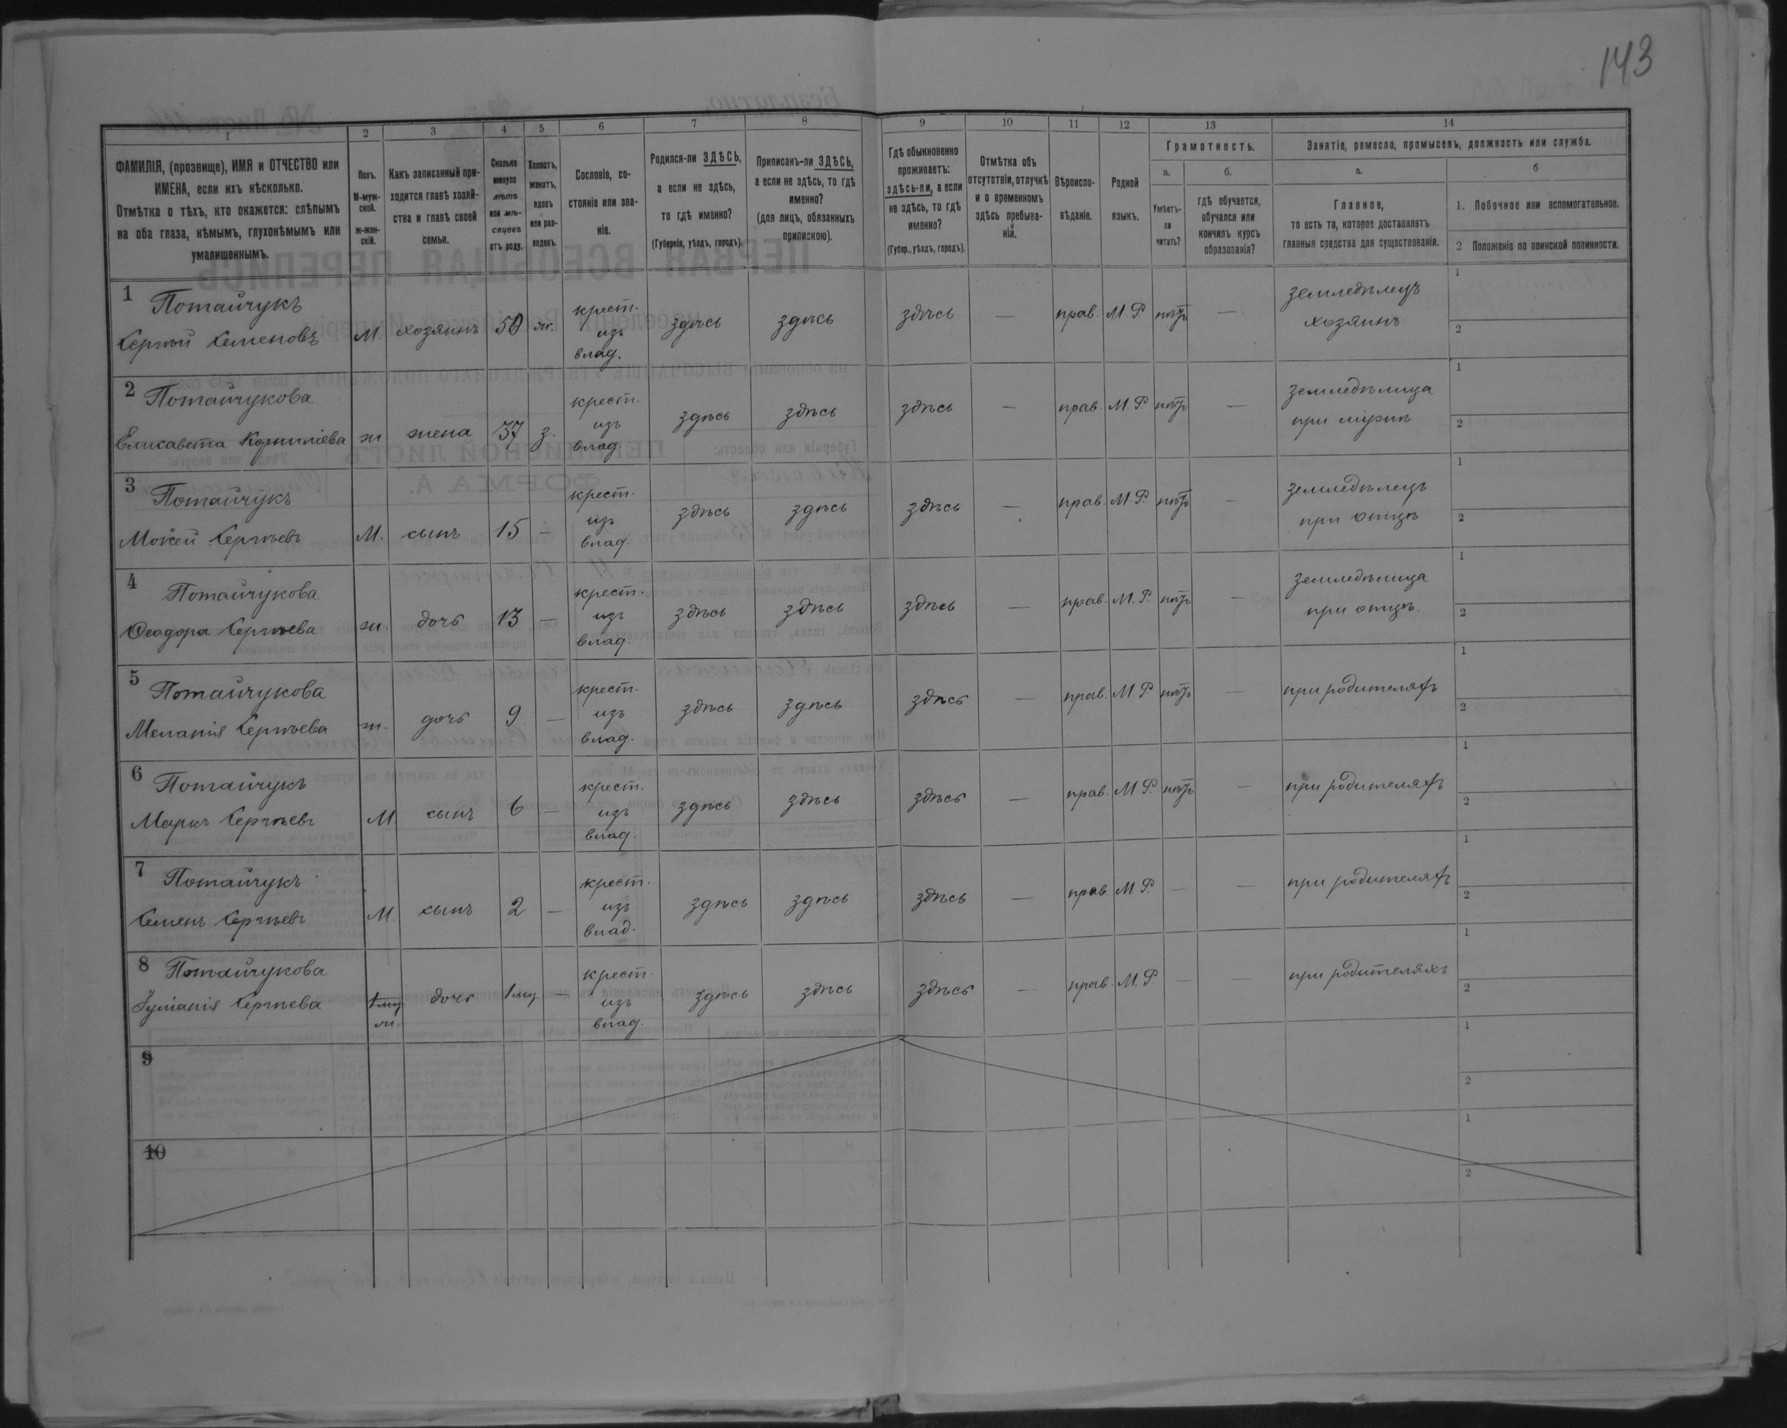 143
1 2 3 4 5 6 7 8 9 10 11 12 13 14
ФАМИЛІЯ, (прозвище), ИМЯ и ОТЧЕСТВО или ИМЕНА, если ихъ нѣсколько.
Отмѣтка о тѣхъ, кто окажется: слѣпымъ на оба глаза, нѣмымъ, глухонѣмымъ или умалишеннымъ.
Полъ. М-муж-ской. Ж-жен-скій.
Какъ записанный при-ходится главѣ хозяй-ства и главѣ своей семьи.
Сколько минуло лѣтъ или мѣ-сяцевъ отъ роду.
Холостъ, женатъ, вдовъ или раз-веденъ.
Сословіе, со-стояніе или зва-ніе.
Родился-ли ЗДѢСЬ, а если не здѣсь, то гдѣ именно?
(Губернія, уѣздъ, городъ).
Приписанъ-ли ЗДѢСЬ, а если не здѣсь, то гдѣ именно?
(для лицъ, обязанныхъ припискою).
Гдѣ обыкновенно проживаетъ: здѣсь-ли, а если не здѣсь, то гдѣ именно?
(Губер., уѣздъ, городъ).
Отмѣтка объ отсутствіи, отлучкѣ и о временномъ здѣсь пребыва-ніи.
Вѣроиспо-вѣданіе.
Родной языкъ.
Грамотность.
а. Умѣетъ-ли читать?
б. гдѣ обучается, обучался или кончилъ курсъ образованія?
Занятіе, ремесло, промыселъ, должность или служба.
а. Главное, то есть то, которое доставляетъ главныя средства для существованія.
б
1. Побочное или вспомогательное.
2 Положеніе по воинской повинности.
1 Потайчукъ Сергѣй Семеновъ М. хозяинъ 50 ж. крест. изъ влад. здѣсь здѣсь здѣсь — прав. М Р. нѣтъ — земледѣлецъ хозяинъ 1 2
2 Потайчукова Елисавета Корниліева ж жена 37 з. крест. изъ влад здѣсь здѣсь здѣсь — прав. М. Р. нѣтъ — земледѣлица при 1 2
3 Потайчукъ Моѵсей Сергѣевъ М. сынъ 15 — крест. изъ влад здѣсь здѣсь здѣсь — прав М Р. нѣтъ — земледѣлецъ при отцѣ 1 2
4 Потайчукова Ѳеодора Сергѣева ж. дочь 13 — крест. изъ влад. здѣсь здѣсь здѣсь — прав. М. Р. нѣтъ — земледѣлица при отцѣ. 1 2
5 Потайчукова Меланія Сергѣева ж. дочь 9 — крест. изъ влад. здѣсь здѣсь здѣсь — прав. М Р нѣтъ — при родителяхъ 1 2
6 Потайчукъ Маркъ Сергѣевъ М. сынъ 6 — крест. изъ влад. здѣсь здѣсь здѣсь — прав. М Р. нѣтъ — при родителяхъ 1 2
7 Потайчукъ Семенъ Сергѣевъ М. сынъ 2 — крест. изъ влад. здѣсь здѣсь здѣсь — прав М Р. — — при родителяхъ 1 2
8 Потайчукова Іуліанія Сергѣева ж. дочь 1 мц — крест. изъ влад. здѣсь здѣсь здѣсь — прав. М. Р. — — при родителяхъ 1 2
9 1 2
10 1 2